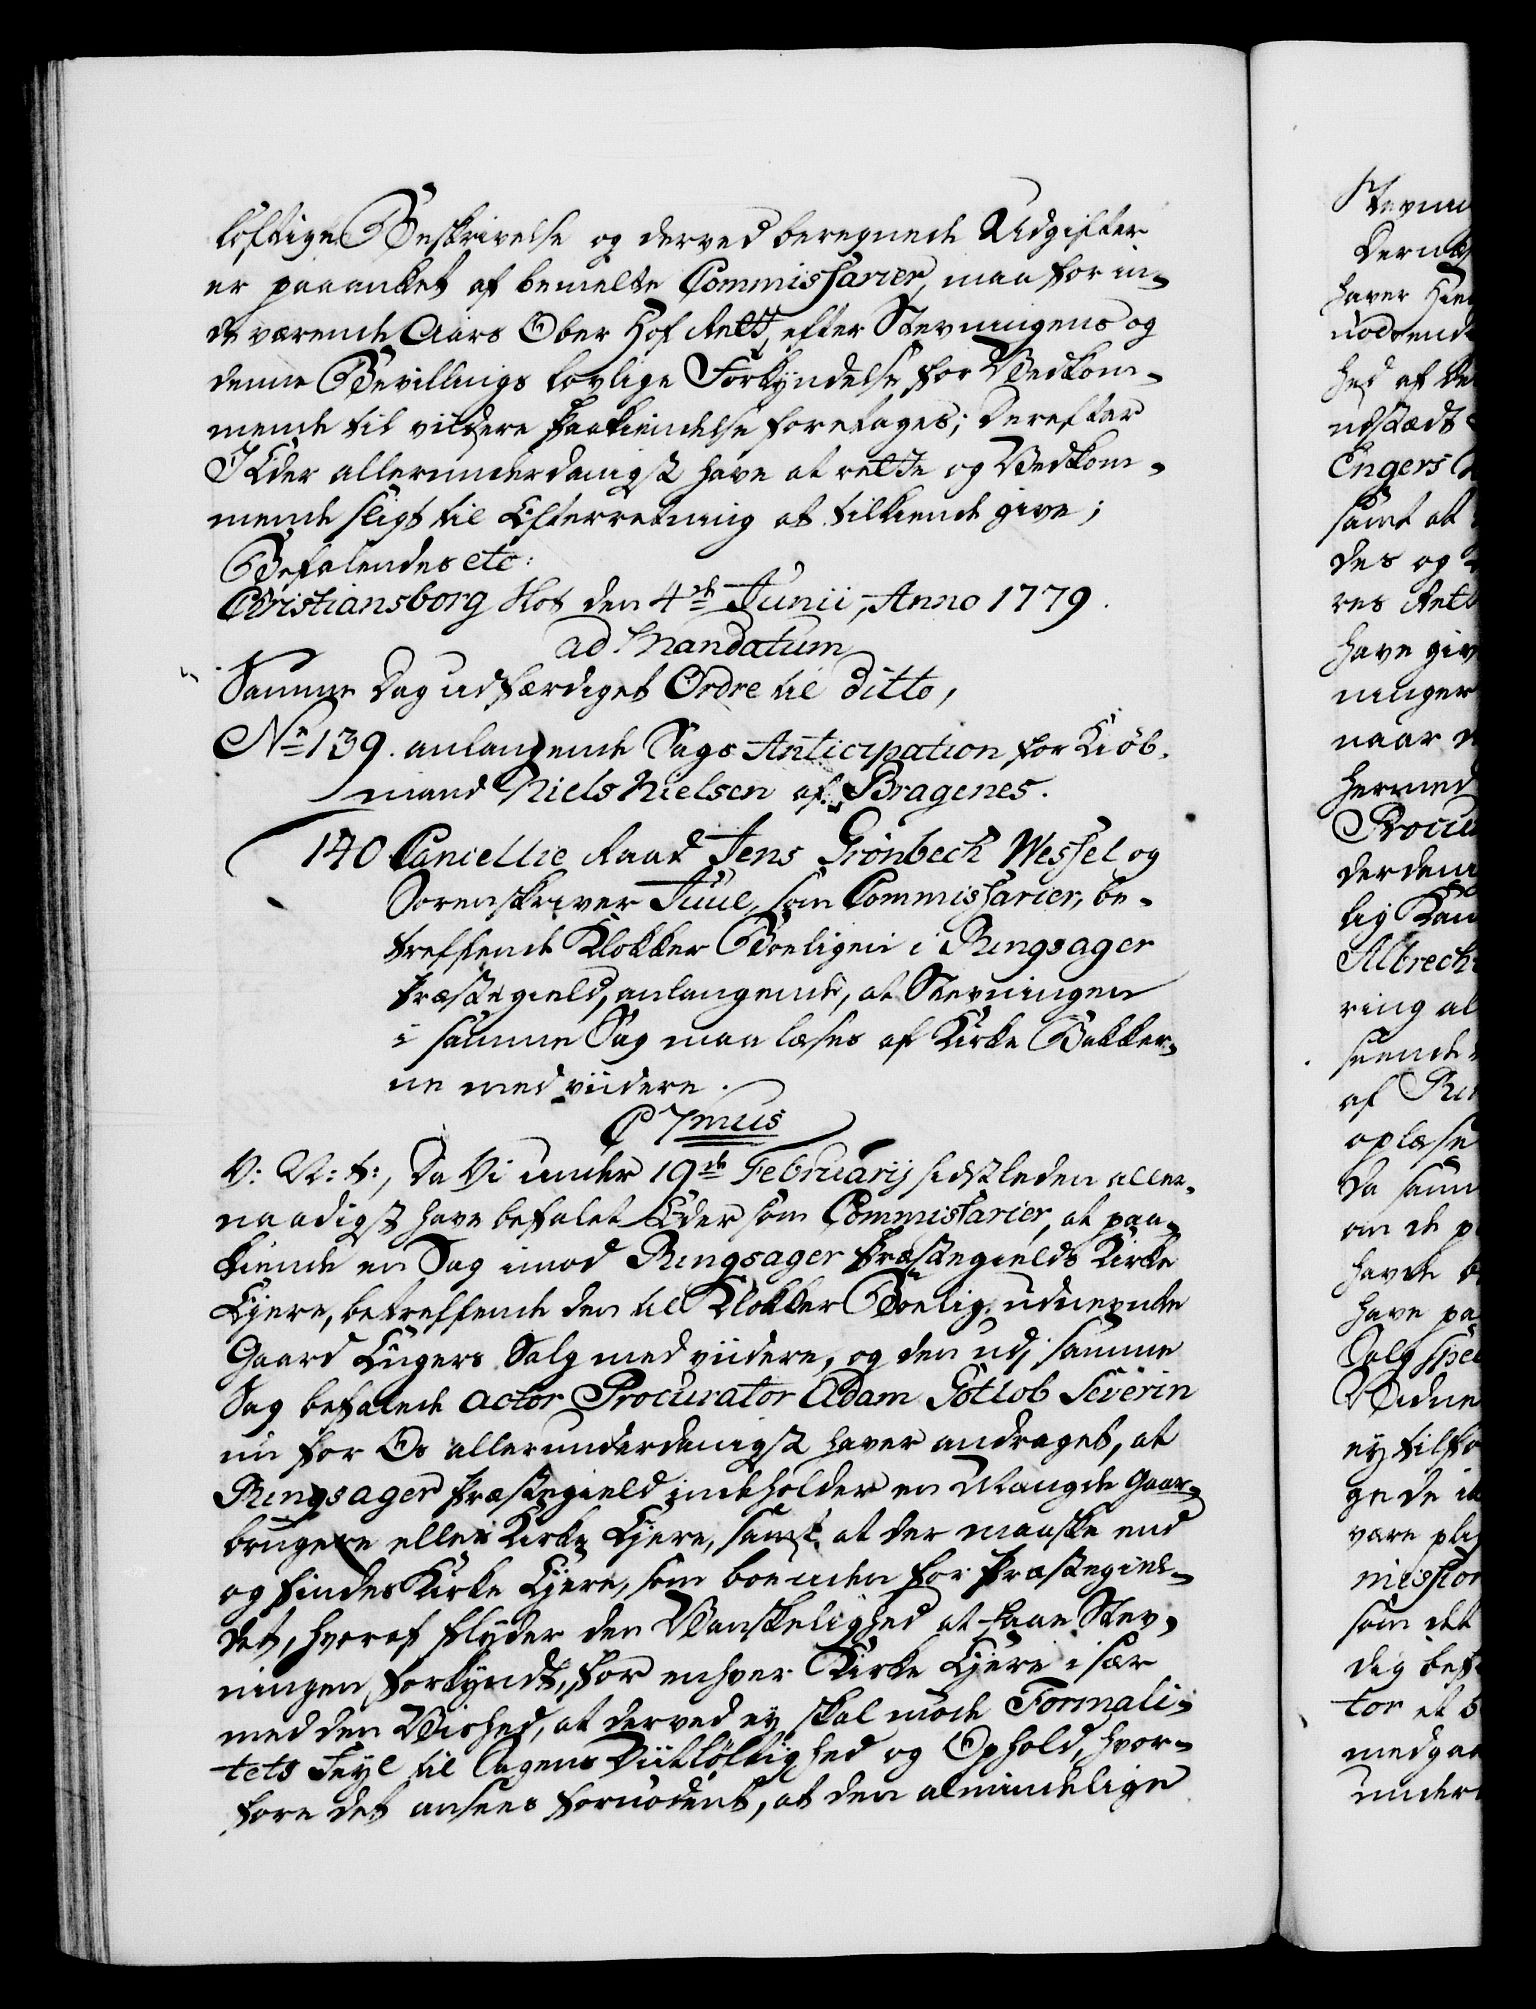 løftige Beskrivelse og derved beregnede Udgifter
er paaanket af bemelte Commissarier, maa for in-
deværende Aars Ober Hof Rett, efter Stevningens og
denne Bevillings lovlige Forkyndelse for Vedkom-
mende til viidere Paakiendelse foretages; Derefter
I Eder allerunderdanigst have at rette og Vedkom-
mende sligt til Efterretning at tilkiende give;
Befalendes etc:
Christiansborg Slot den 4de Junii, Anno 1779.
ad Mandatum
Samme Dag udfærdiget Ordre til ditto,
No 139. anlangende Sags Anticipation for Kiøb-
mand Niels Nielsen af Bragenes.
140 Cancellie Raad Jens Grønbech Wessel og
Sorenskriver Juul, som Commissarier, be-
treffende Klokker Boeligen i Ringsager
Præstegield, anlangende, at Stevningen
i samme Sag maa læses af Kirke Bakker-
ne med viidere.
C 7mus
V: G: t:, Da Vi under 19de Februarij sidstleden aller-
naadigst have befalet Eder som Commissarier, at paa-
kiende en Sag imod Ringsager Præstegields Kirke
Ejere, betreffende den til Klokker Boelig udnevnte
Gaard Engers Salg med viidere, og den udj samme
Sag befalede Actor Procurator Adam Gotlob Severin
nu for Os allerunderdanigst haver andraget, at
Ringsager Præstegield indeholder en Mængde Gaar-
brugere eller Kirke Ejere, samt at der maaske end
og findes Kirke Ejere, som boe uden for Præstegiel-
det, hvoraf flyder den Vanskelighed at faae Stev-
ningen forkyndt, for enhver Kirke Ejere især
med den Vished, at derved ey skal møde Formali-
tets Feyl til Sagens Vitløftighed og Ophold, hvor-
fore det ansees fornødent, at den almindelige